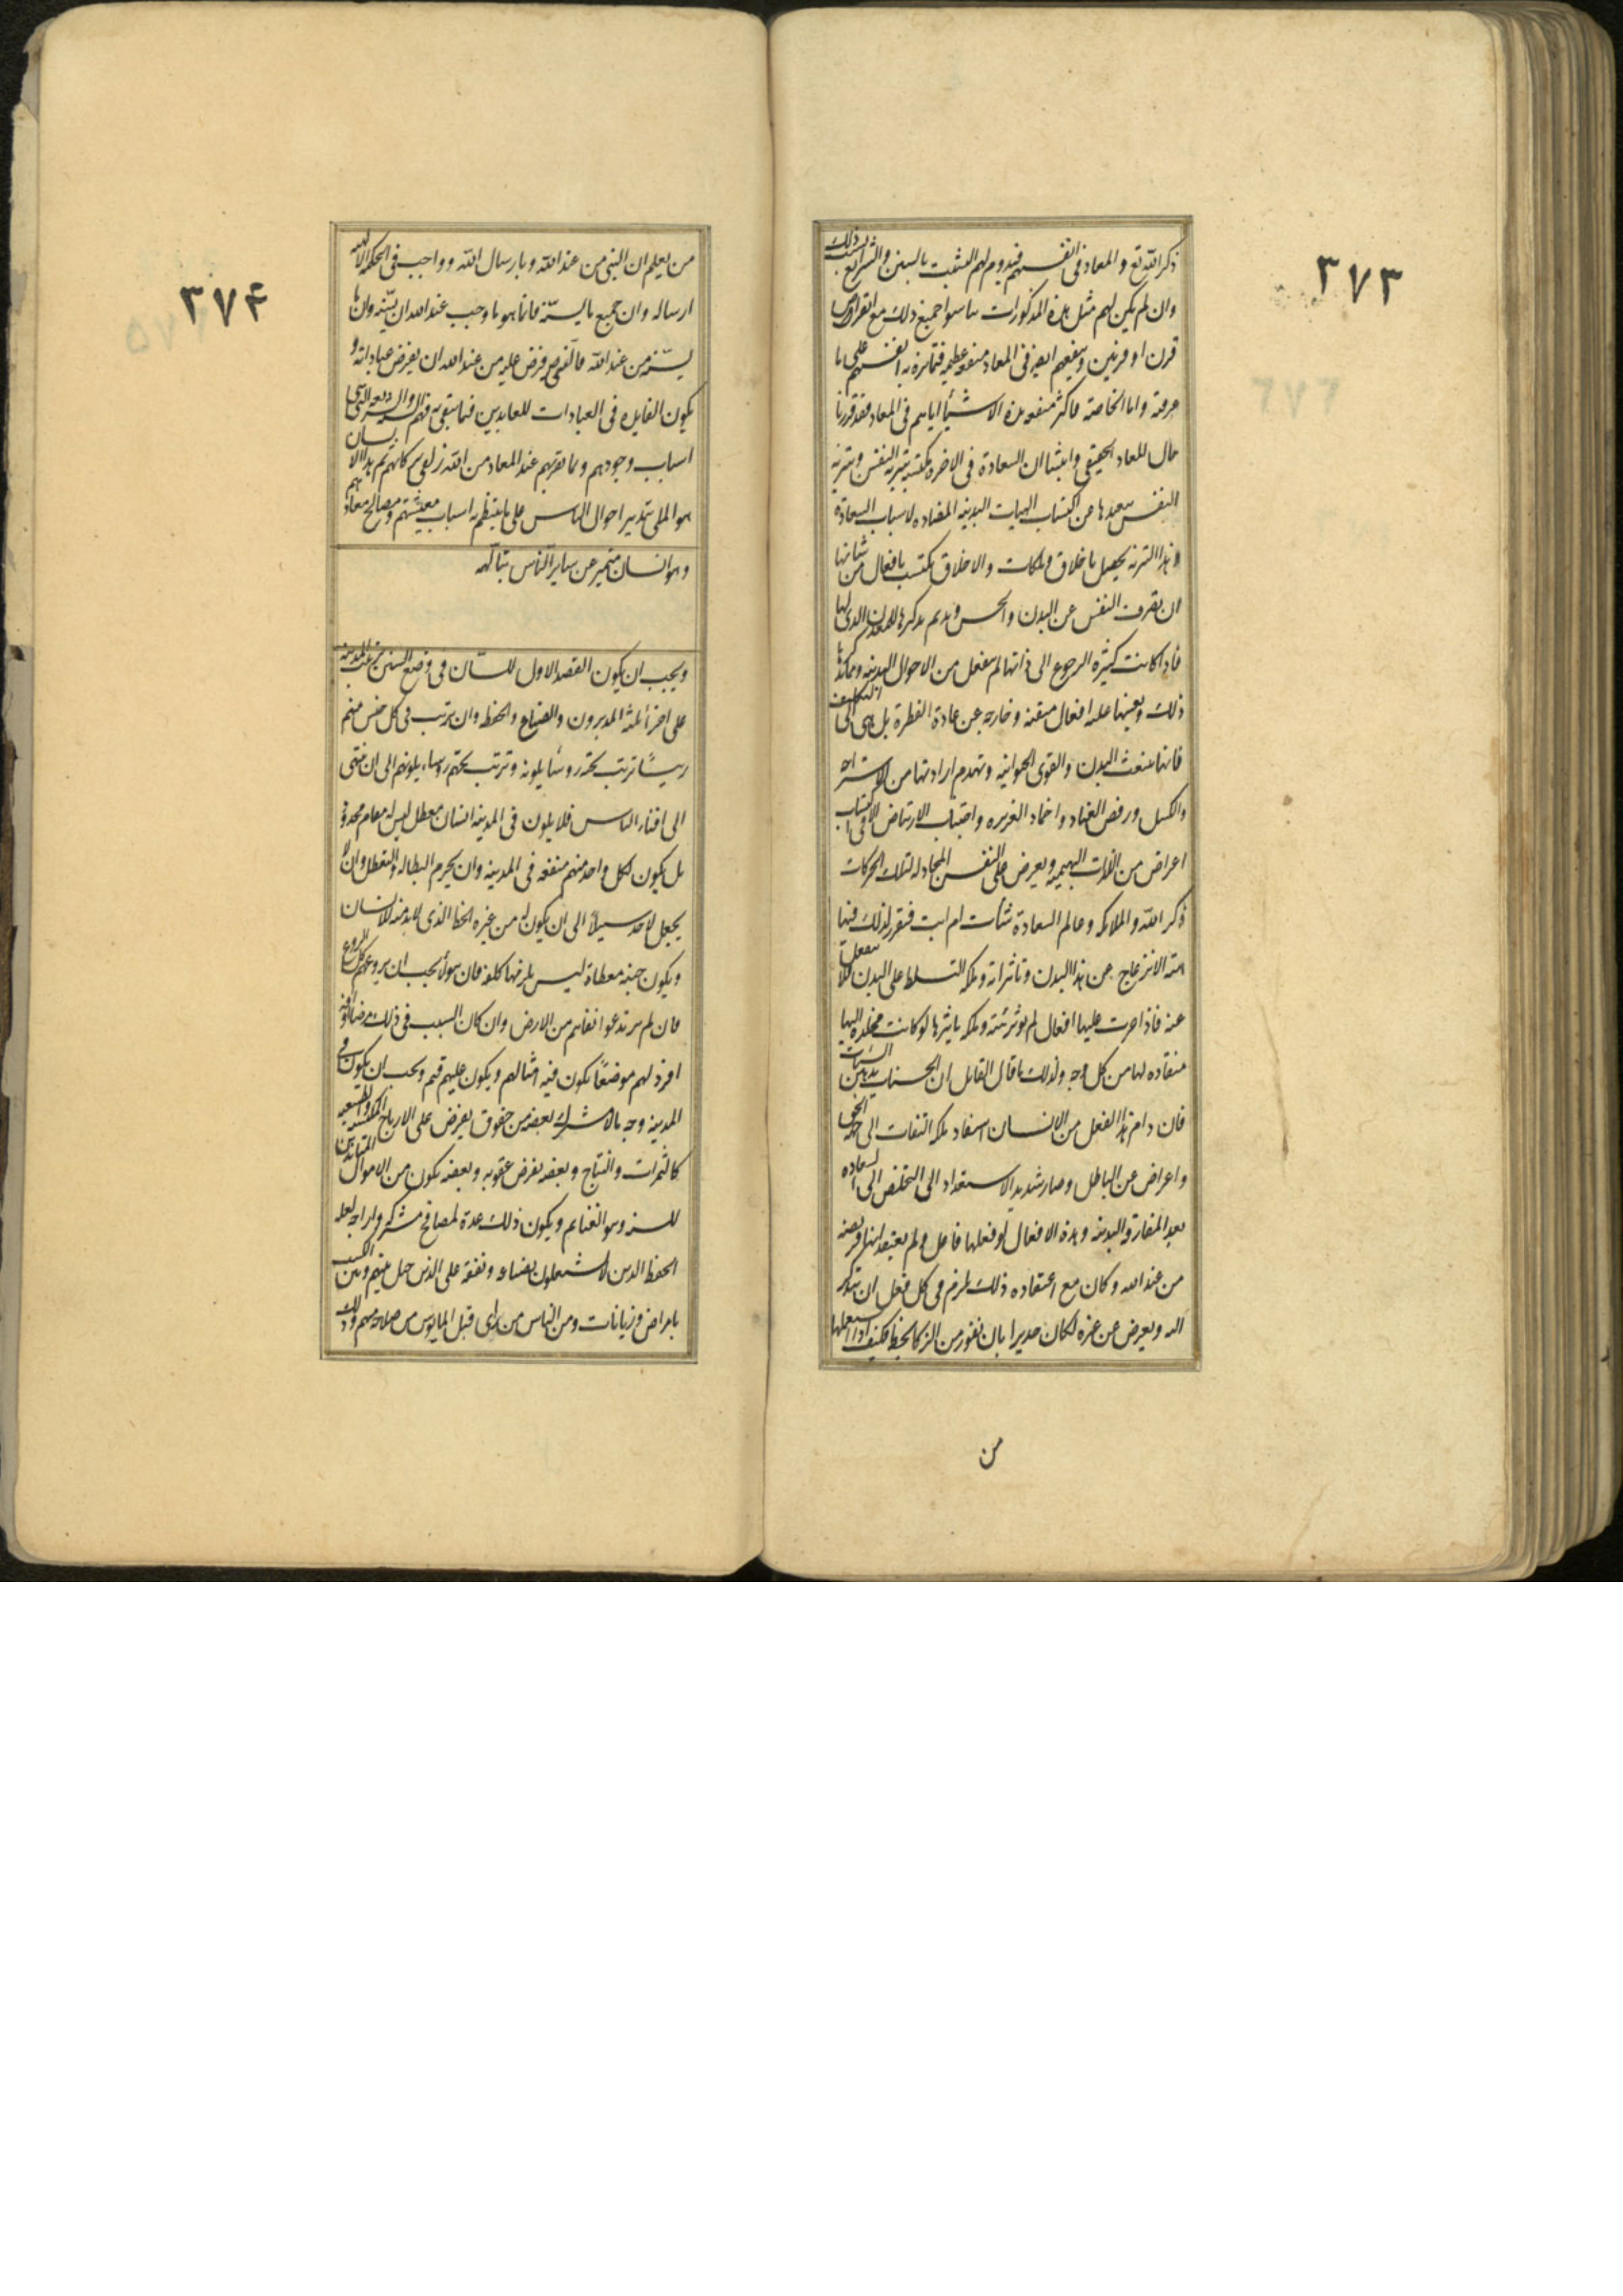 ٣٧٣
ذكر الله تع والمعاد فى انفسهم فيدوم لهم التشبث بالسنن والشرايع بسبب ذلك
وان لم يكن لهم مثل هذه المذكورات تناسوا جميع ذلك مع انقراض
قرن او قرنين وينفعهم ايضا فى المعاد منفعه عظيمه فيما تنزه به انفسهم على ما
عرفته واما الخاصه فاكثر منفعه هذه الاشيأ اياهم فى المعاد فقد قررنا
حال المعاد الحقيقى واثبتنا ان السعادة فى الاخره مكتسبه بتنزيه النفس وتنزيه
النفس يبعدها من اكتساب الهيات البدنيه المضاده لاسباب السعادة
وهذا التنزيه يحصل باخلاق وملكات والاخلاق يكتسب بافعال من شانها
ان تصرف النفس عن البدن والحس ويديم تذكيرها للمعدن الذى لها
فاذا كانت كثيره الرجوع الى ذاتها لم ينفعل من الاحوال البدنيه ومما يذكرها
ذلك ويعينها عليه افعال متعبه وخارجه عن عادة الفطرة بل هى الى التكليف
فانها يتعب البدن والقوى الحيوانيه وتهدم ارادتها من الاستراحه
والكسل ورفض العناد واخماد الغريزه واجتناب الارتياض الا فى اكتساب
اعراض من اللذات البهيميه ويعرض على النفس المحاوله لتلك الحركات
ذكر الله والملايكه وعالم السعادة شأت ام ابت فيقرر لذلك فيها
هيئه الانزعاج عن هذا البدن وتاثيراته وملكه التسلط على البدن فلا ينفعل
عنه فاذا جرت عليها افعال لم يوثر هيئه وملكه تاثيرها لو كانت مخلده اليها
منقاده لها من كل وجه ولذلك ما قال القايل ان الحسنات يذهبن السيئات
فان دام هذا الفعل من الانسان استفاد ملكه التفات الى جهه الحق
واعراض عن الباطل وصار شديد الاستعداد الى التخلص الى السعاده
بعد المفارقه البدنيه وهذه الافعال لو فعلها فاعل ولم يعتقد انها فريضه
من عند الله وكان مع اعتقاده ذلك يلزم فى كل فعل ان يتذكر
الله ويعرض عن غيره لكان جديرا بان يفوز من الزكا بحظ فكيف اذا استعملها
من
٣٧۴
من يعلم ان النبى من عند الله وبارسال الله وواجب فى الحكمه الالهيه
ارساله وان جميع ما يسنّه فانما هو ما وجب عند الله ان يسنّه وان ما
يسنّه من عند الله فالنبى فرض عليه من عند الله ان يفرض عباداته و
يكون الفايده فى العبادات للعابدين فيما يبقى به فيهم السنه والشريعه التى هى
اسباب وجودهم وبما يقربهم عند المعاد من الله زلفى بزكاتهم ثم هذا الانسان
هو الملى بتدبير احوال الناس على ما ينتظم به اسباب معيشتهم ومصالح معادهم
وهو انسان متميز عن ساير الناس بتألهه
ويجب ان يكون القصد الاول للسان فى وضع السنن ترتيب المدينه
على اجزأ ثلثه المدبرون والصناع والحفظه وان يرتب فى كل جنس منهم
رييسًا ترتب تحته روسأ يلونه وترتب تحتهم روساء يلونهم الى ان ينتهى
الى افناء الناس فلا يكون فى المدينه انسان معطل ليس له مقام محدود
بل يكون لكل واحد منهم منفعه فى المدينه وان يحرم البطاله والتعطل وان لا
يجعل لاحد سبيلاً الى ان يكون له من غيره الحظ الذى لابد منه للانسان
ويكون جنبه معطاة ليس يلزمها كلفه فان هولأ يجب ان يردعهم كل الردع
فان لم يرتدعوا نفاهم من الارض وان كان السبب فى ذلك مرضا او آفه
افرد لهم موضعًا يكون فيه امثالهم ويكون عليهم قيم ويجب ان يكون فى
المدينه وجه مال مشترك بعضه من حقوق يفرض على الارباح المكتسبه والطبيعيه
كالثمرات والنتاج وبعضه يفرض عقوبه وبعضه يكون من اموال المنابذين
للسنه وهو الغنايم ويكون ذلك عدة لمصالح مشتركه وازاحه لعله
الحفظه الذين لا يشتغلون بصناعه ونفقه على الذين حيل بينهم وبين الكسب
بامراض وزمانات ومن الناس من راى قتل المايوس من صلاحه منهم وذلك